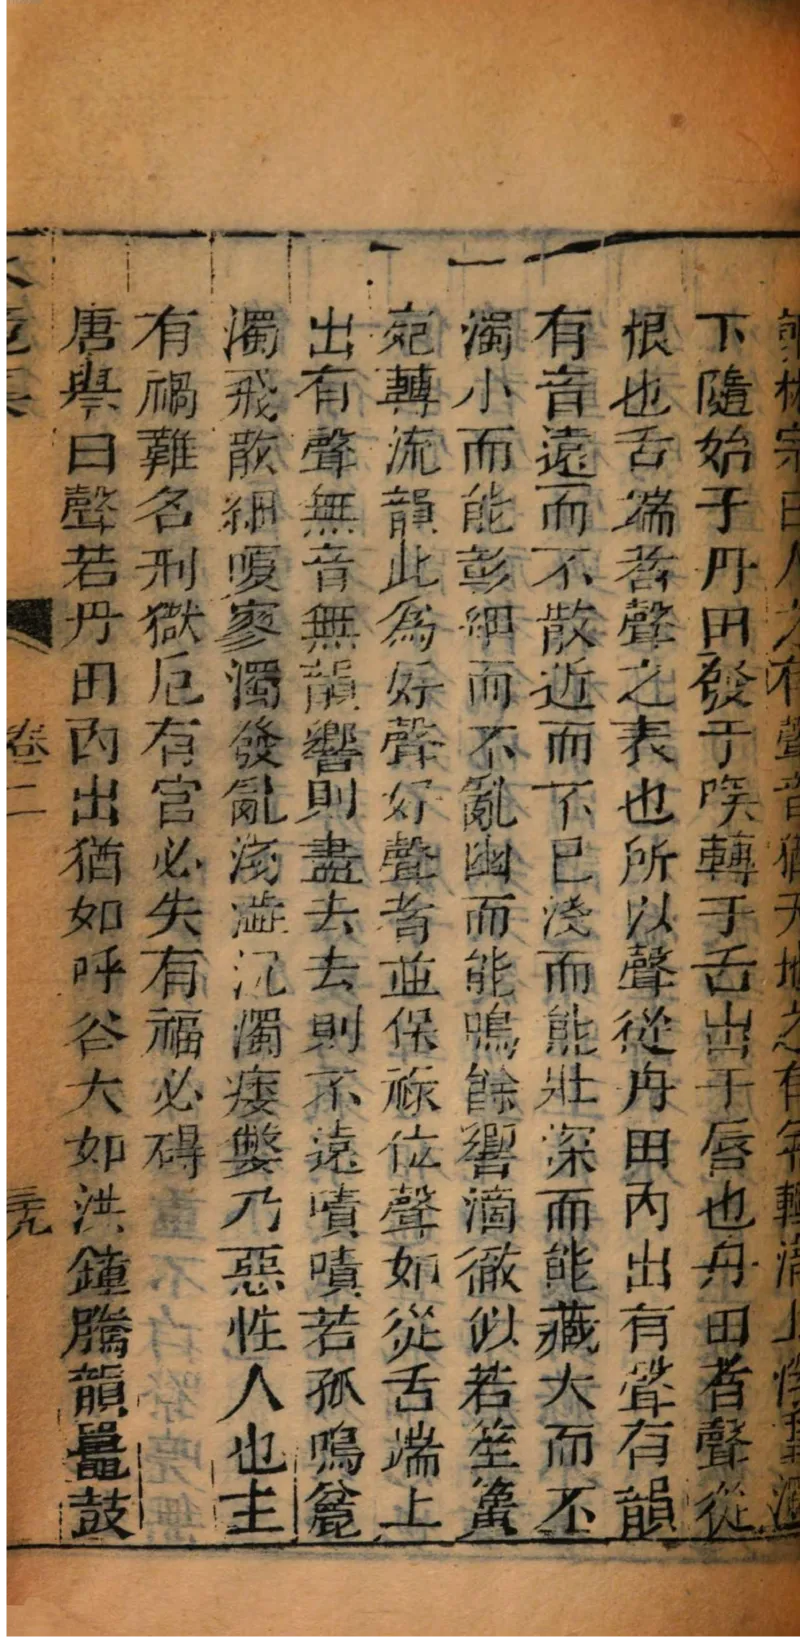 宗曰人之有聲音猶天地之有年轉清上
下隨始于丹田發于喉轉于舌出于唇也丹田者聲從
根也舌端者聲之表也所以聲從丹田內出有聲有韻
有音遠而不散近而不已淺而能壯深而能藏大而不
濁小而能彭細而不亂幽而能鳴餘響滴徹似若笙簧
宛轉流韻此為好聲好聲者並保祿位聲如從舌端上
出有聲無音無韻響則盡去去則不遠嘖嘖若孤鳴
濁飛散細嗄寥濁發亂澁沉濁痿斃乃惡性人也主
有禍難名刑獄厄有官必失有福必碍
唐舉曰聲若丹田內出猶如呼谷大如洪鐘騰韻鼉鼓
卷二
三九